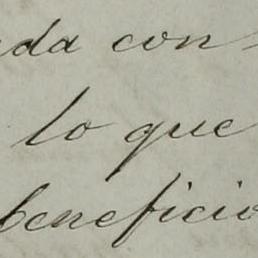 da con
lo que
beneficio